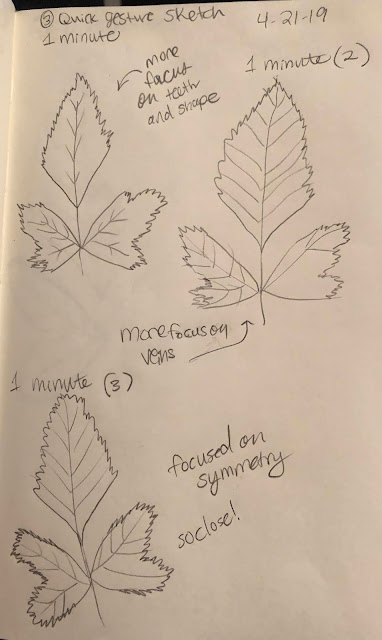 ③ Quick gesture sketch
4-21-19
1 minute
more
focus
on teeth
and shape
1 minute (2)
more focus on
veins
1 minute (3)
focused on
symmetry
so close!